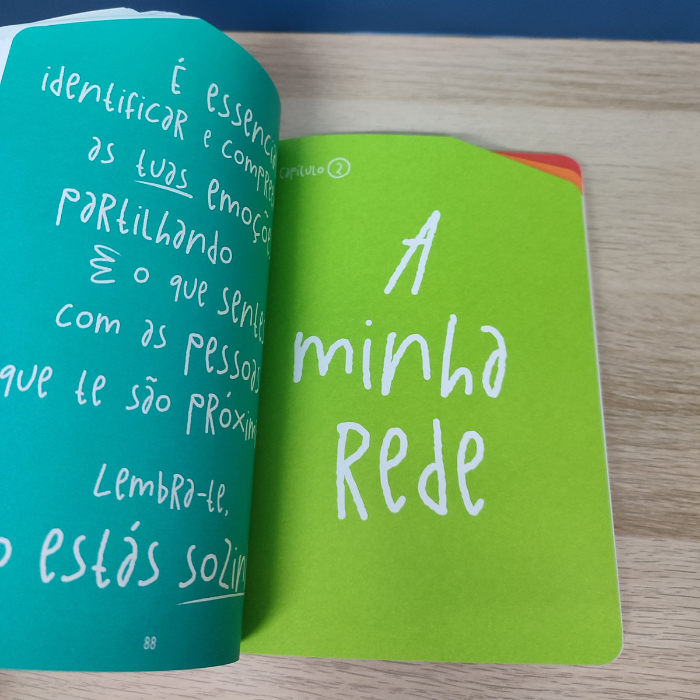 É essencia
identificar e compre
as tuas emoçõe
partilhando
o que sentes
com as pessoas
que te são próxim
Lembra-te,
o estás sozin
88
Capítulo 2
A
minha
Rede